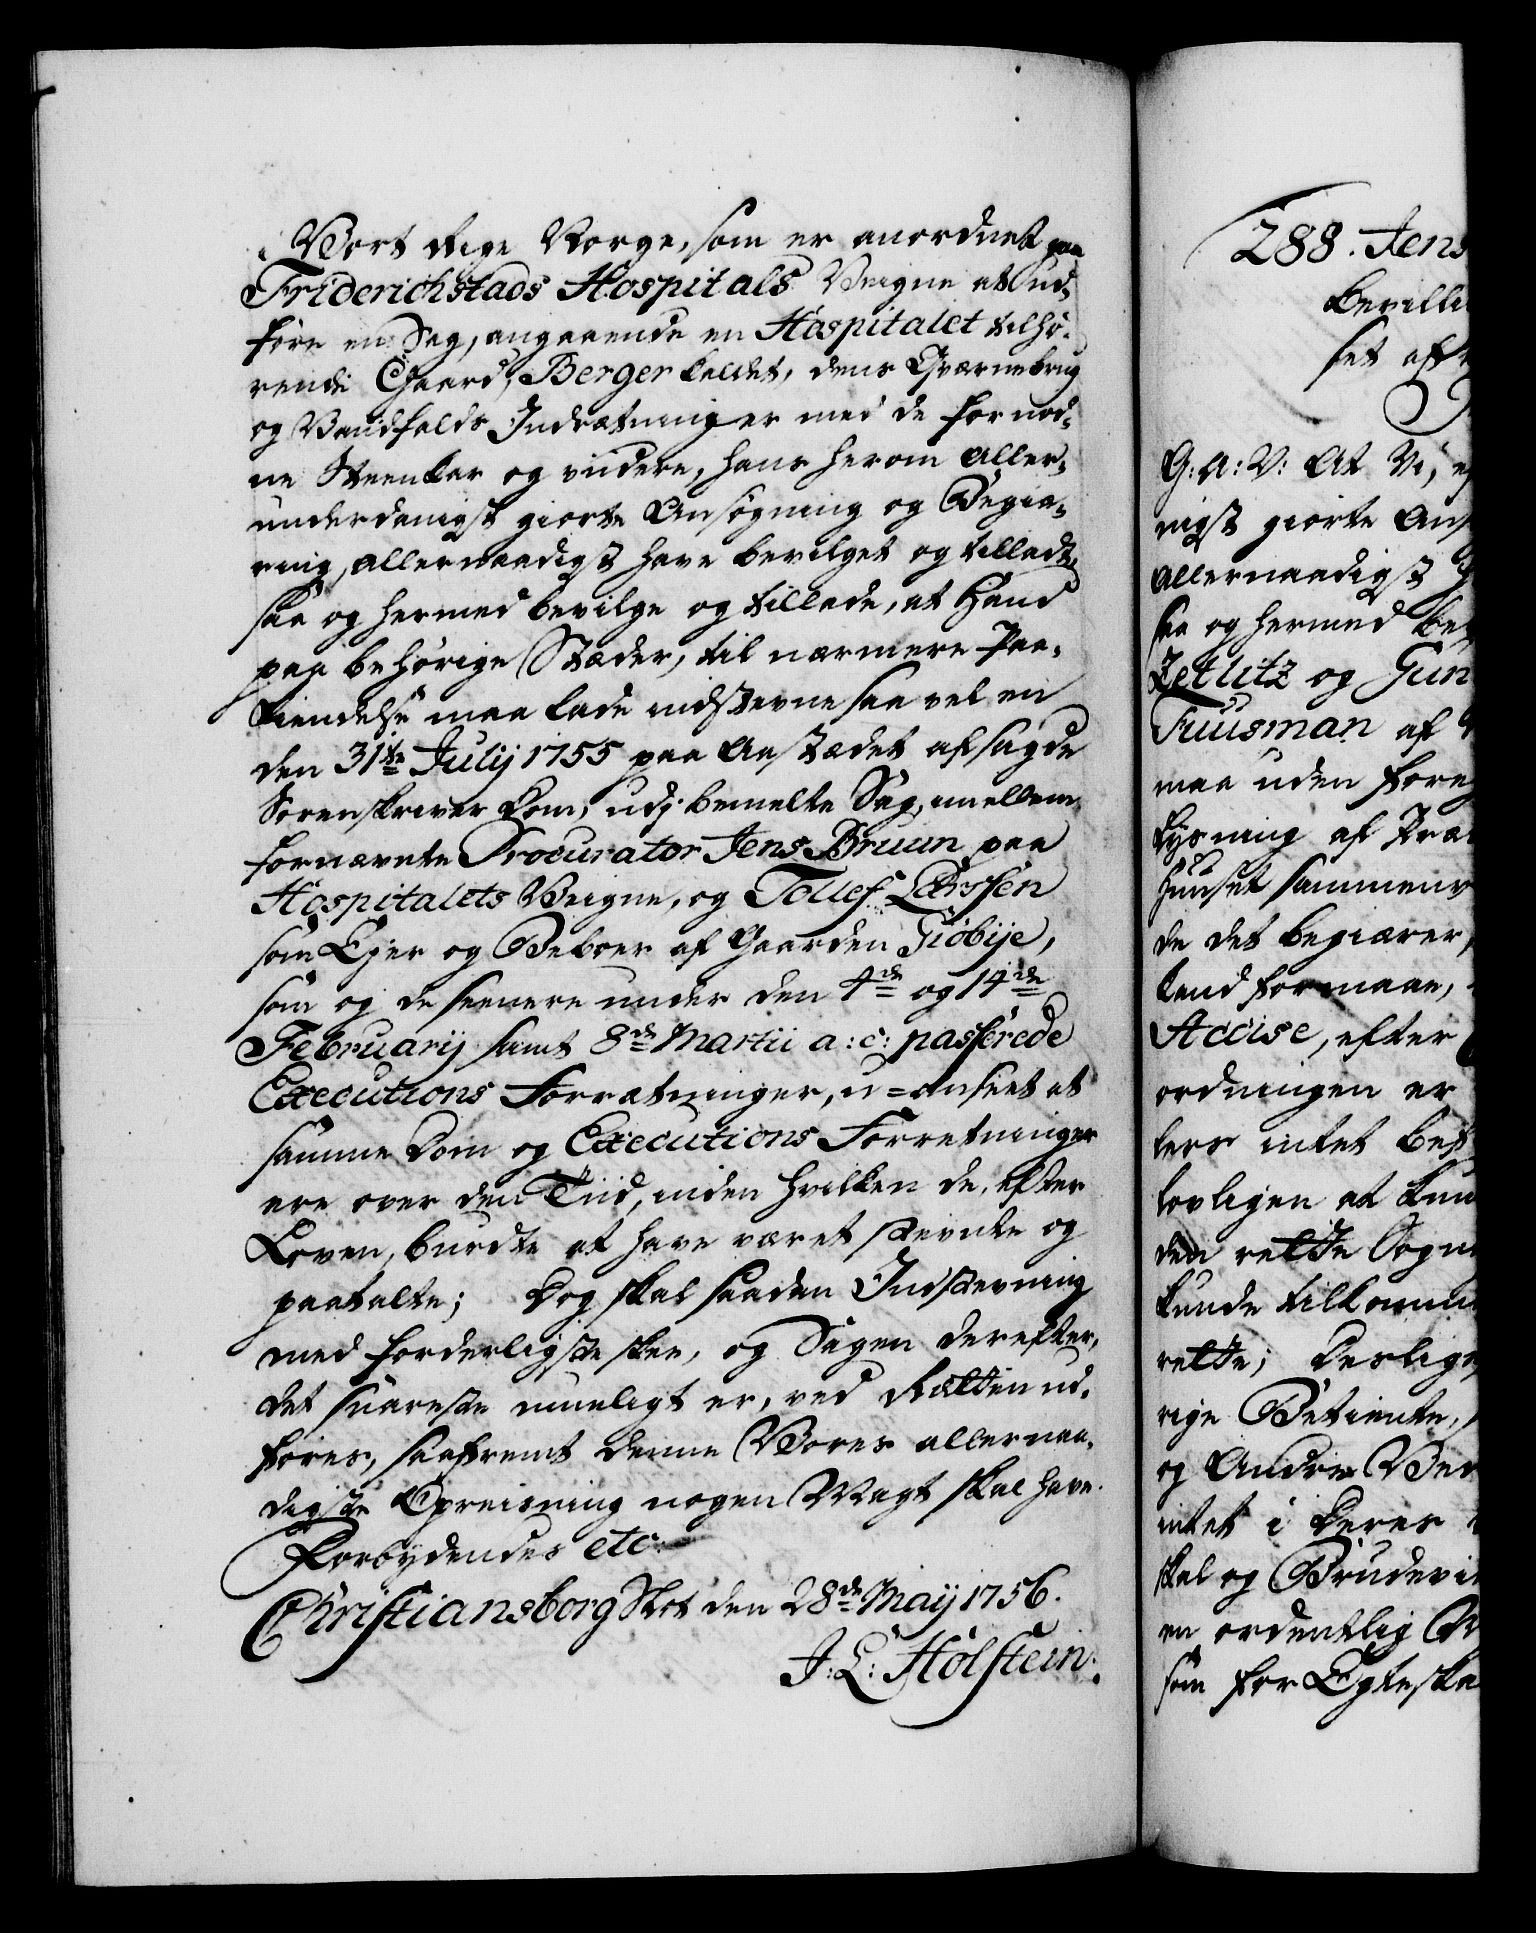 i Vort Rige Norge, som er anordnet paa
Friderichstads Hospitals Veigne at ud-
føre en Sag, angaaende en Hospitalet tilhø-
rende Gaard, Berger kaldet, dens Qværnebrug
og Vandfalds Indrætninger med de fornød-
ne Steenkar og viidere, hans herom aller-
underdanigst giorte Ansøgning og Begiæ-
ring, allernaadigst have bevilget og tilladt,
saa og hermed bevilge og tillade, at Hand
paa behørige Stæder, til nærmere Paa-
kiendelse maa lade indstevne saa vel en
den 31te Julij 1755 paa Aastædet afsagde
Sorenskriver Dom, udj bemelte Sag, imellem
fornævnte Procurator Jens Bruun paa
Hospitalets Veigne, og Tollef Larssen
som Ejer og Beboer af Gaarden Giøbije,
som og de seenere under den 4de og 14de
Februarij samt 8de Martii a: c: passerede
Executions Forrætninger, u=anseet at
samme Dom og Executions Forretninger
ere over den Tiid, inden hvilken de, efter
Loven, burdte at have været stevnte og
paatalte; Dog skal saadan Indstevning
med forderligste skee, og Sagen derefter,
det snareste mueligt er, ved Rætten ud-
føres, saafremt denne Vores allernaa-
digste Opreisning nogen Magt skal have.
Forbydendes etc.
Christiansborg Slot den 28de Maij 1756.
J: L: Holstein.
288. Jens
Bevilli
set aff
G: A: V: At Vi, ef
nigst giorte Ans
allernaadigst
saa og hermed be
Zetlitz og Gun
Tuusman af
maa uden fore
lysning af Præ
huuset sammenv
de det begiærer,
kand formaae,
Accise, efter
ordningen er
lers intet bef
lovligen at kun
den rette Sogne
kunde tilkomme
rette; Deslige
rige Betiente,
og Andre Ved
intet i deres
skal og Brudevi
en ordentlig
som for Egteska